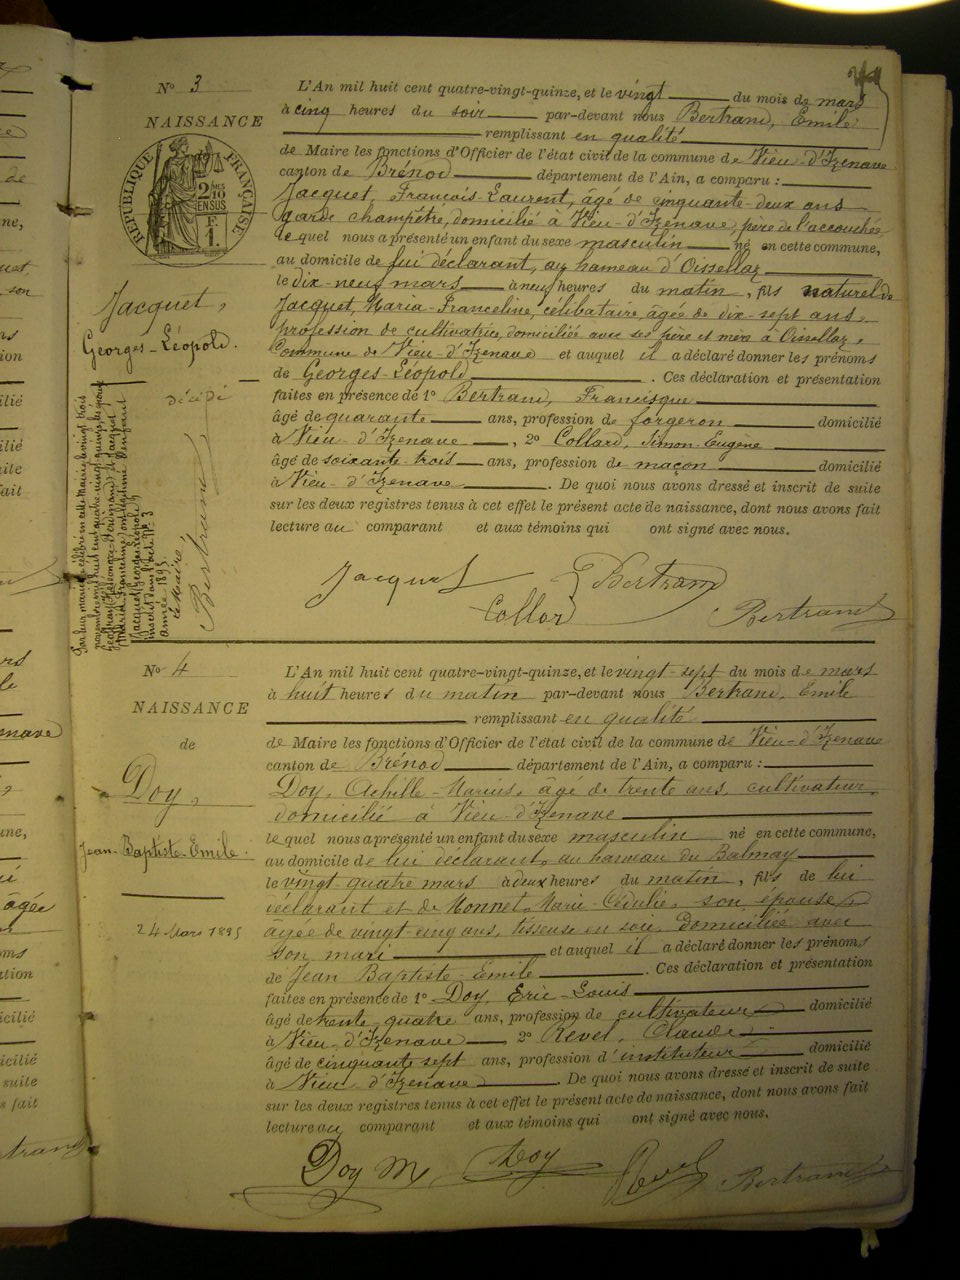 N° 3
NAISSANCE
RÉPUBLIQUE FRANÇAISE
2/10
EN SUS
F.
1.
Jacquet,
Georges-Léopold.
décédé
Par leur mariage célébré en cette Mairie le vingt trois
novembre mil huit cent quatre-vingt quinze, les époux
Geoffray
Maria Franceline ont légitimé l'enfant
Jacquet Georges Léopold
inscrit dans l'acte N° 3
année 1895.
Le Maire,
Bertrand
L'An mil huit cent quatre-vingt-quinze, et le vingt du mois de mars
à cinq heures du soir par-devant nous Bertrand, Emile
remplissant en qualité
de Maire les fonctions d'Officier de l'état civil de la commune de Vieu-d'Izenave
canton de Brénod département de l'Ain, a comparu :
Jacquet, François-Laurent, âgé de cinquante-deux ans
garde champêtre, domicilié à Vieu-d'Izenave, père de l'accouchée
lequel nous a présenté un enfant du sexe masculin né en cette commune,
au domicile de lui déclarant, au hameau d'Oissellaz
le dix-neuf mars à neuf heures du matin, fils naturel de
Jacquet, Maria-Franceline, célibataire, âgée de dix-sept ans,
profession de cultivatrice, domiciliée avec ses père et mère à Oissellaz,
Commune de Vieu-d'Izenave et auquel il a déclaré donner les prénoms
de Georges-Léopold. Ces déclaration et présentation
faites en présence de 1° Bertrand, Francisque
âgé de quarante ans, profession de forgeron domicilié
à Vieu-d'Izenave, 2° Collard, Simon-Eugène
âgé de soixante-trois ans, profession de maçon domicilié
à Vieu-d'Izenave. De quoi nous avons dressé et inscrit de suite
sur les deux registres tenus à cet effet le présent acte de naissance, dont nous avons fait
lecture au comparant et aux témoins qui ont signé avec nous.
Jacquet Bertrand
Collard Bertrand
N° 4
NAISSANCE
de
Doy,
Jean-Baptiste-Emile.
24 Mars 1895
L'An mil huit cent quatre-vingt-quinze, et le vingt-sept du mois de mars
à huit heures du matin par-devant nous Bertrand, Emile
remplissant en qualité
de Maire les fonctions d'Officier de l'état civil de la commune de Vieu-d'Izenave
canton de Brénod département de l'Ain, a comparu :
Doy, Achille-Marius, âgé de trente ans, cultivateur,
domicilié à Vieu-d'Izenave
lequel nous a présenté un enfant du sexe masculin né en cette commune,
au domicile de lui déclarant, au hameau du Balmay
le vingt quatre mars à deux heures du matin, fils de lui
déclarant et de Monnet, Marie-Céculie, son épouse
âgée de vingt-cinq ans, tisseuse en soie, domiciliée avec
son mari et auquel il a déclaré donner les prénoms
de Jean Baptiste-Emile. Ces déclaration et présentation
faites en présence de 1° Doy, Eric-Louis
âgé de trente quatre ans, profession de cultivateur domicilié
à Vieu-d'Izenave 2° Revel, Claude
âgé de cinquante sept ans, profession d'instituteur domicilié
à Vieu-d'Izenave. De quoi nous avons dressé et inscrit de suite
sur les deux registres tenus à cet effet le présent acte de naissance, dont nous avons fait
lecture au comparant et aux témoins qui ont signé avec nous.
Doy M Doy Revel Bertrand